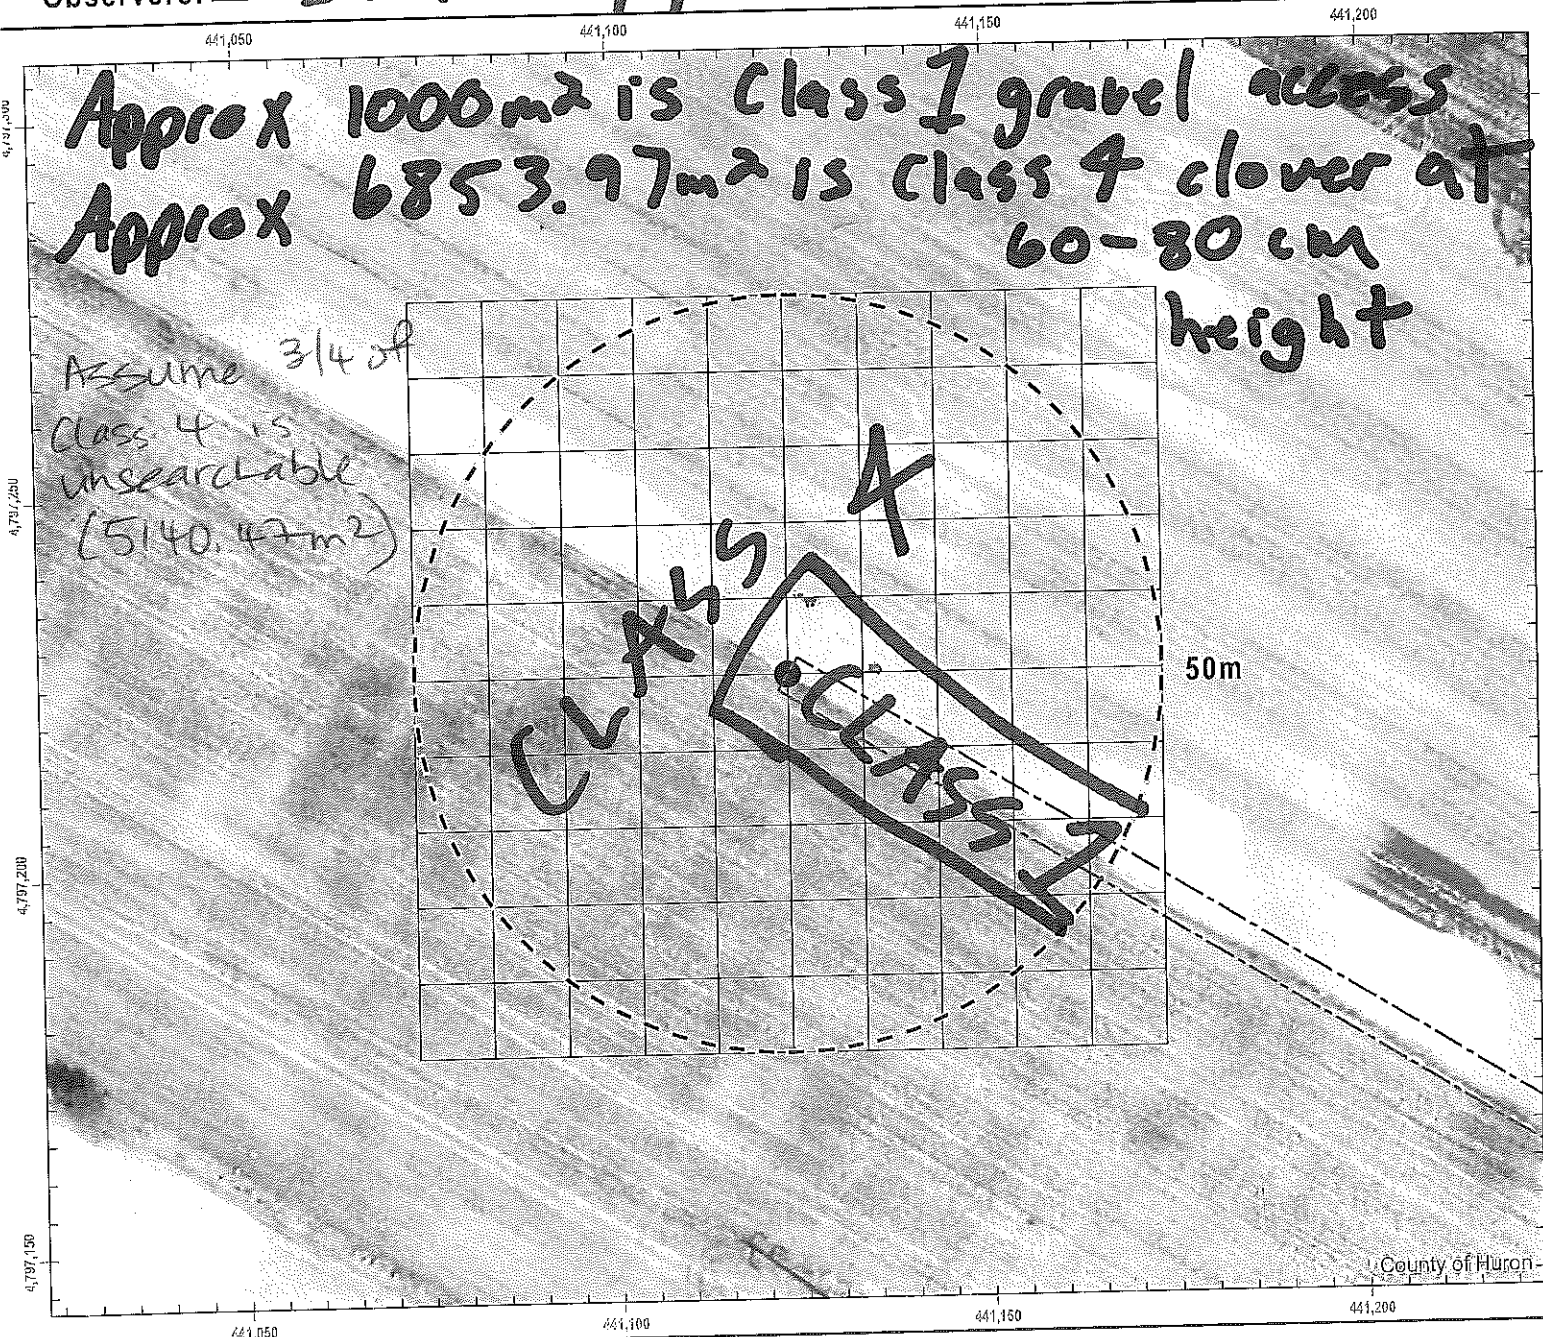 441,050 441,100 441,150 441,200
Approx 1000m² is Class 1 gravel access
Approx 6853.97m² is Class 4 clover at
60-80 cm
height
Assume 3/4 of
Class 4 is
unsearchable
(5140.47m²)
CLASS 4
CLASS 1
50m
4,797,250
4,797,200
4,797,150
County of Huron
441,050 441,100 441,150 441,200